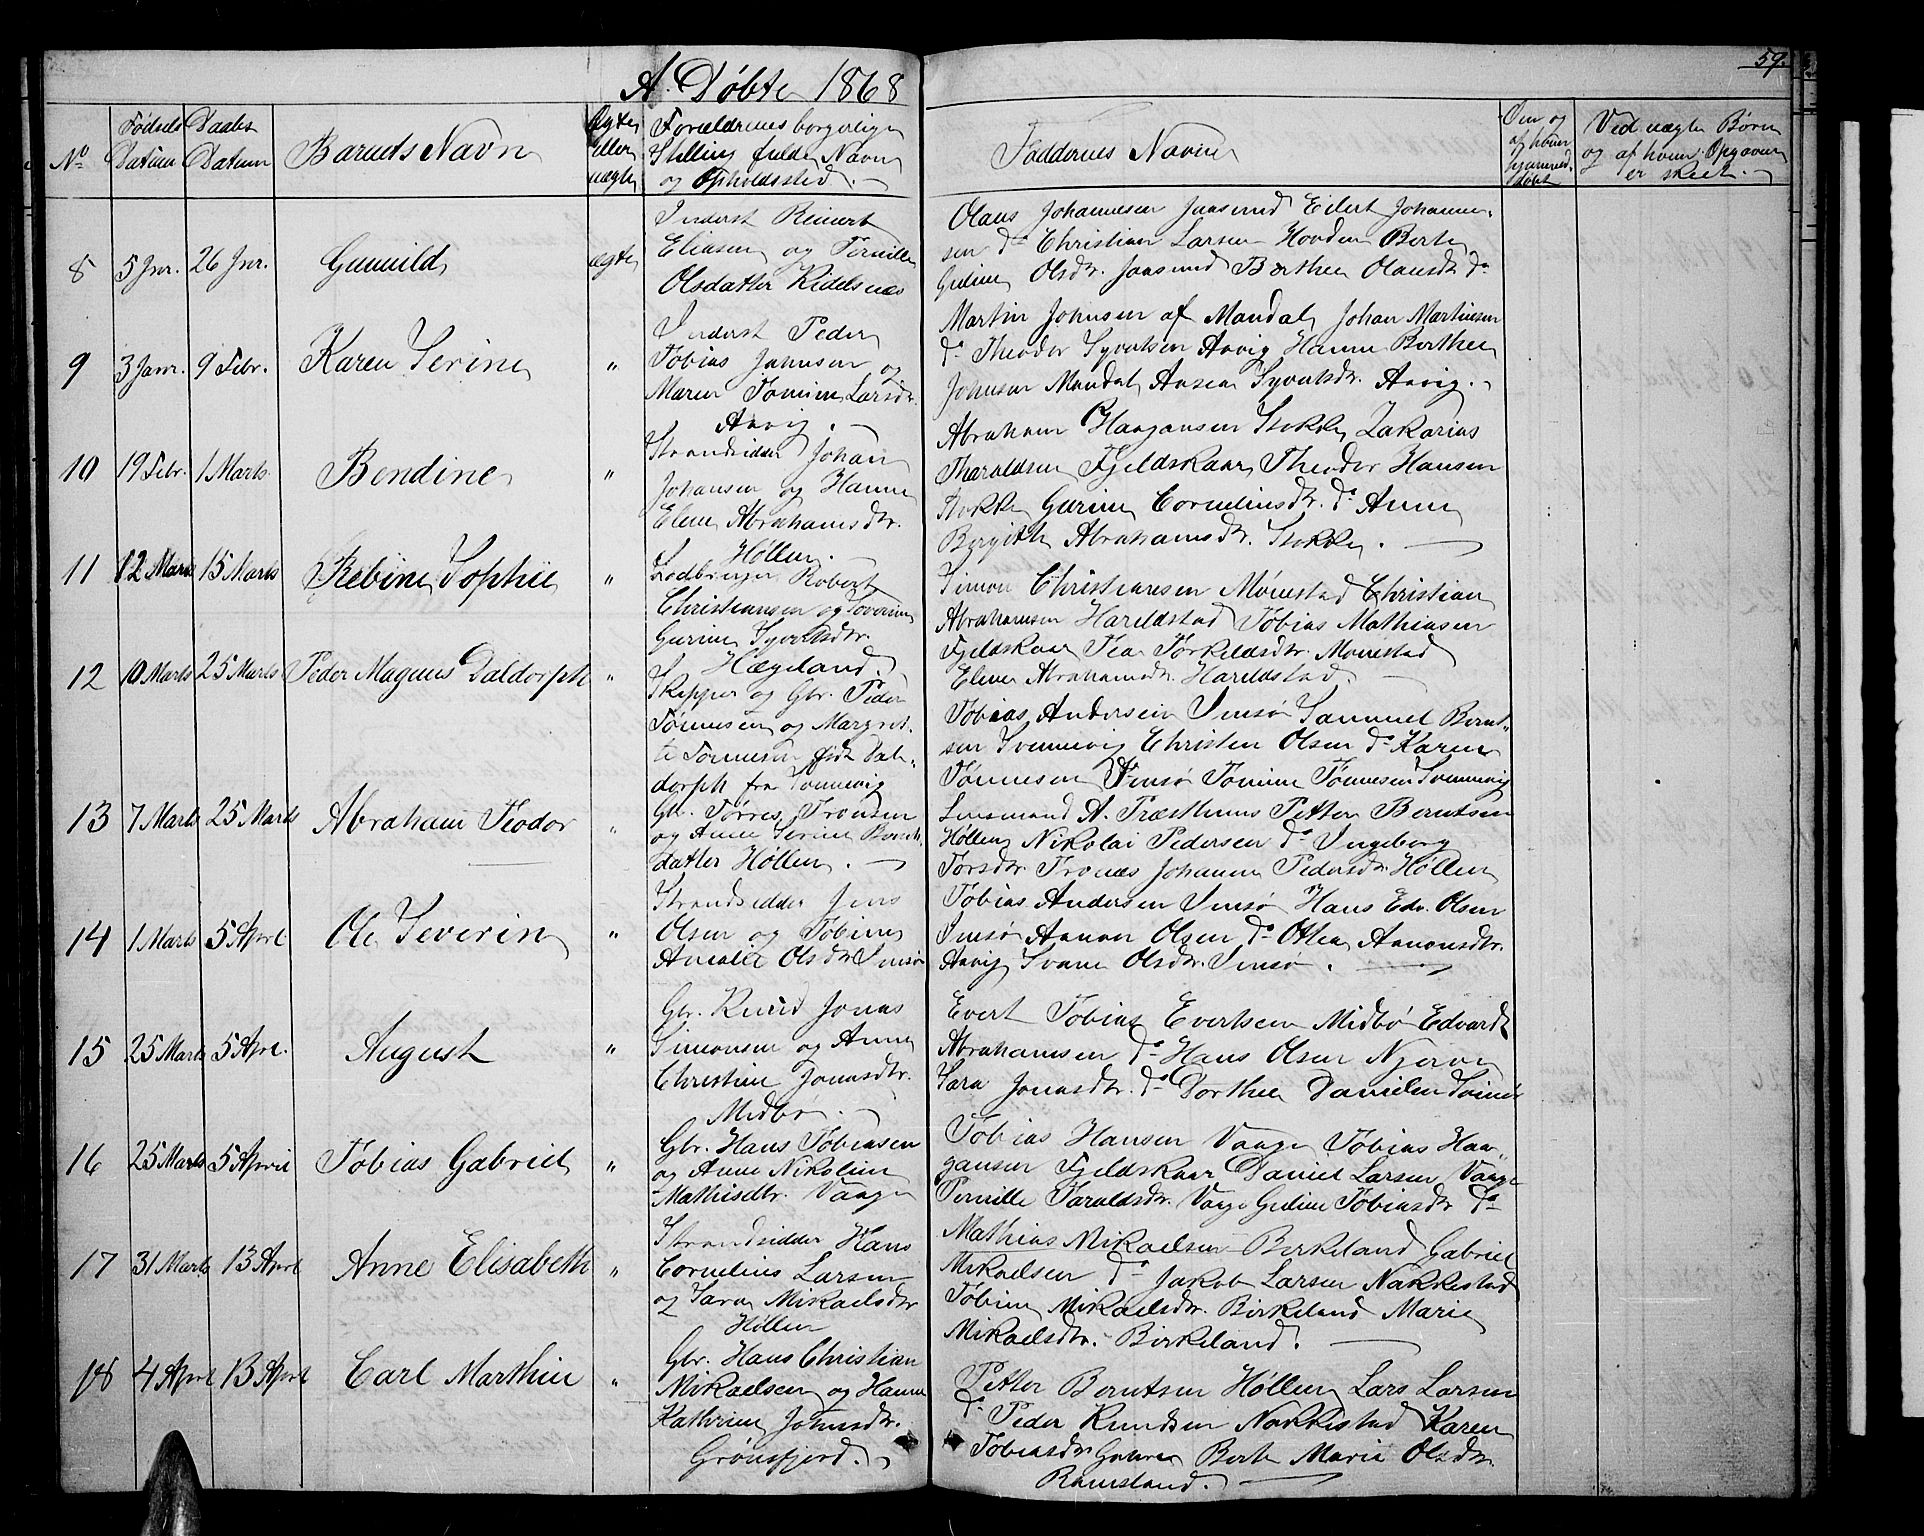 59.
A. Døbte 1868
No
Fødsels Datum
Daabs Datum
Barnets Navn
Ægte eller uægte
Forældrenes borgerlige Stilling fulde Navne og Opholdssted.
Faddernes Navne
Om og af hvem hjemmedøbt
Ved uægte Børn og af hvem Opgaven er skeet.
8 5 Jnr. 26 Jnr. Gunuild ægte
Inderst Reinert
Eliasen og Pernille
Olsdatter Kidelsnæs
Olaus Johannesen Jaasund Eilert Johanne-
sen do Christian Larsen Houden Berte
Gidine Olsdtr. Jaasund Berthea Olausdtr do
9 3 Janr. 9 Febr. Karen Serine "
Inderst Peder
Tobias Johnsen og
Maren Tomine Larsdtr.
Aavig.
Martin Johnsen af Mandal Johan Martinsen
do Theodor Syvertsen Aavig Hanne Berthea
Johnsen Mandal Ansea Syvertsdtr. Aavig.
10 19 Febr. 1 Marts Bendine "
Strandsidder Johan
Johansen og Hanne
Elene Abrahamsdtr.
Høllen.
Abraham Haagansen Stokke Zakarias
Tharaldsen Fjeldskaar Theodor Hansen
Stokke Gurine Corneliusdtr. do Anne
Bergithe Abrahamsdtr. Stokke.
11 12 Marts 15 Marts Rebine Sophie "
Robert
Christiansen og Severine
Gurine Syvertsdtr.
Hægeland.
Simon Christiansen Mønestad Christian
Abrahamsen Hareldstad Tobias Mathiasen
Fjeldskaar Tea Torkelsdtr. Monestad
Elene Abrahamsdtr. Hareldstad
12 10 Marts 25 Marts Peder Magnus Daldorph "
Skipper og Gbr. Peder
Tønnesen og Margret-
te Tønnesen født Dal-
dorph fra Svennevig
Tobias Andersen Imsø Sammuel Bernt-
sen Svennevig Christen Olsen do Karen
Tønnesen Imsø Tomine Tønnesen Svennevig
13 7 Marts 25 Marts Abraham Teodor "
Gbr. Tørres Tronsen
og Anne Serine Berent-
datter Høllen.
Lensmand A. Træsthuus Petter Berntsen
Høllen Nikolai Pedersen do Ingeborg
Torsdtr. Tronæs Johanne Pedersdtr Høllen
14 1 Marts 5 April Ole Severin "
Strandsidder Jens
Olsen og Tobine
Amalie Olsdtr Imsø
Tobias Andersen Imsø Hans Edv. Olsen
Imsø Aanon Olsen do Othea Aanonsdtr.
Aavig Svane Olsdtr. Imsø.
15 25 Marts 5 Aprl. August "
Gbr. Knud Jonas
Simonsen og Anne
Christine Jonasdtr.
Midbø.
Evert Tobias Evertsen Midbø Edvardt
Abrahamsen do Hans Olsen Njerve
Sara Jonasdtr. do Dorthea Danielsen
16 25 Marts 5 April Tobias Gabriel "
Gbr. Hans Tobiassen
og Anne Nikoline
Mathisdtr. Vaage
Tobias Hansen Vaage Tobias Haa-
gansen Fjeldskaar Daniel Larsen Vaage
Pernille Taraldsdtr. Vaage Gidine Tobiasdtr do
17 31 Marts 13 April Anne Elisabeth "
Strandsidder Hans
Cornelius Larsen
og Sara Mikaelsdtr
Høllen
Mathias Mikaelsen Birkeland Gabriel
Mikaelsen do Jakob Larsen Nakkestad
Tobine Mikaelsdtr. Birkeland Marie
Mikaelsdtr. Birkeland.
18 4 April 13 April Carl Marthin "
Gbr. Hans Christian
Mikaelsen og Hanne
Kathrine Johnsdtr.
Grønsfjord.
Petter Berntsen Høllen Lars Larsen
do Peder Knudsen Nakkestad Karen
Tobiasdtr Berte Marie Olsdtr.
Ramsland.